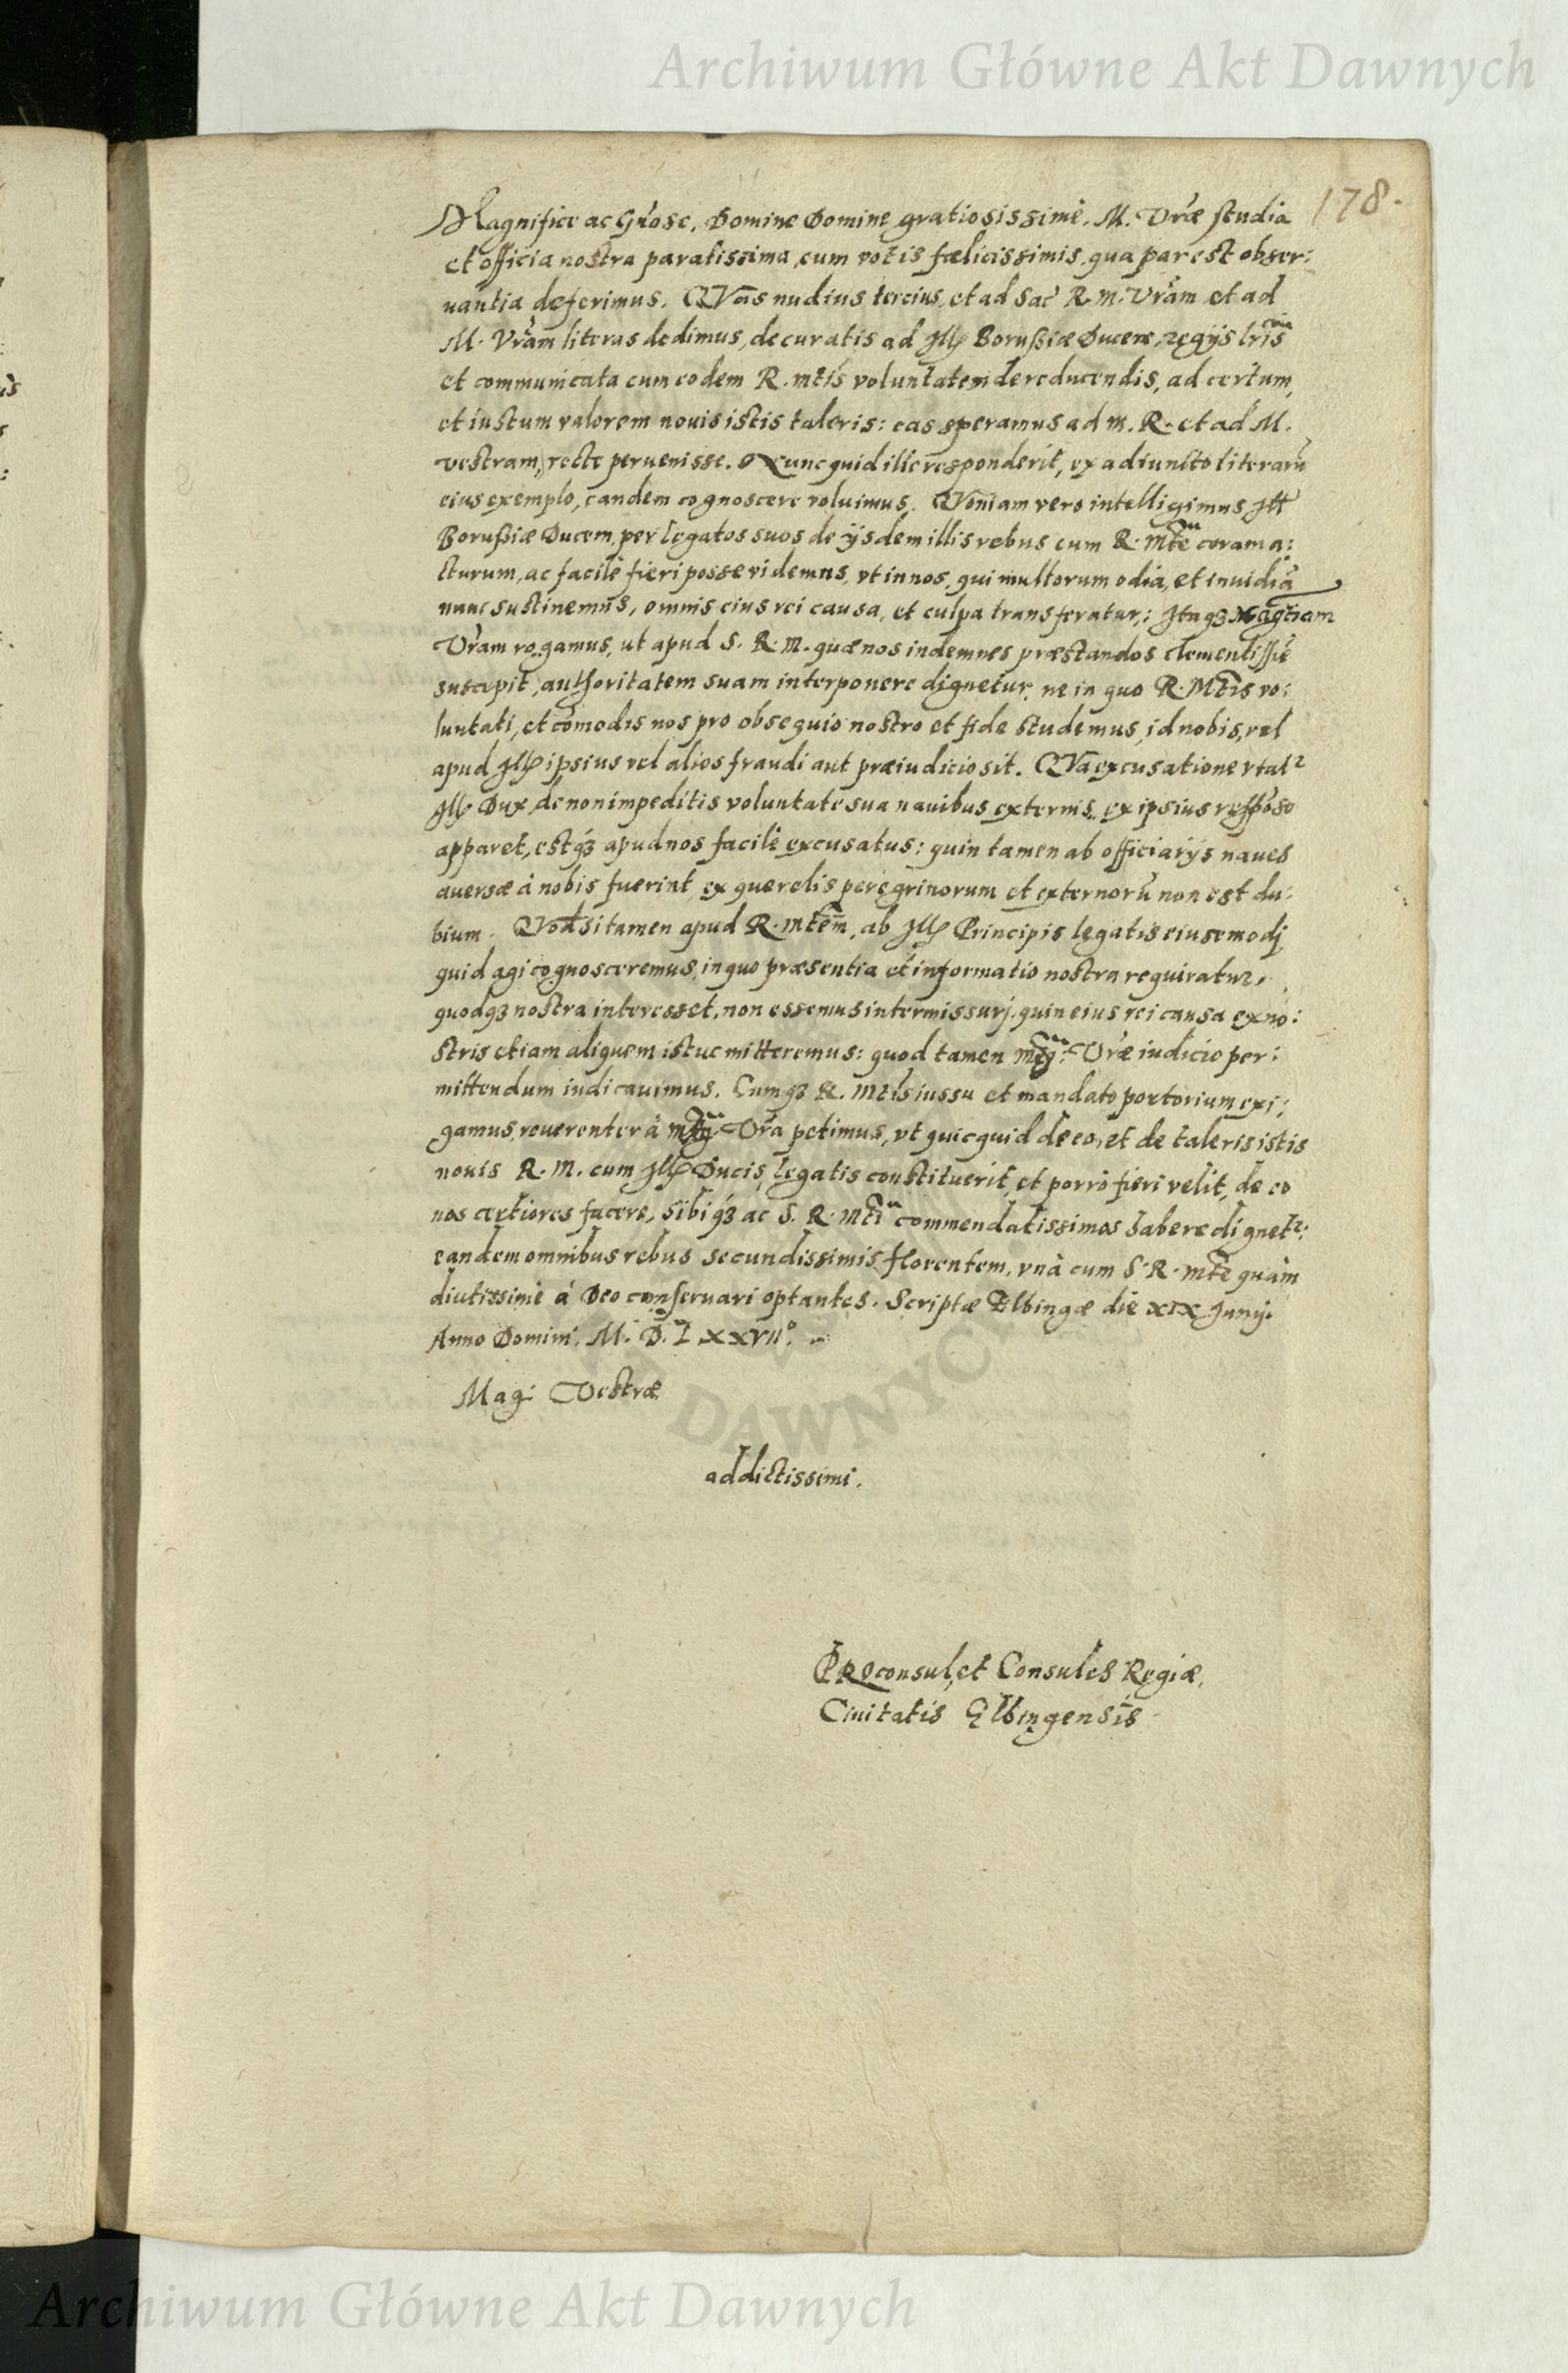 Archiwum Główne Akt Dawnych
178.
Magnifice ac Gn̄ose, Domine Domine gratiosissime. M. Vr̄æ studia
et officia nostra paratissima, cum votis fœlicissimis, qua par est obser:
uantia deferimus. QVas nudius tercius, et ad Sac̄ R. M. Vr̄am et ad
M. Vr̄am literas dedimus, de curatis ad Ill. Borußiæ Ducem, regijs lr̄is
et communicata cum eodem R. mt̄is voluntatem de reducendis, ad certum,
et iustum valorem nouis istis taleris: eas speramus ad m. R. et ad M.
vestram, recte peruenisse. Nunc quid ille responderit, ex adiuncto literarū
eius exemplo, eandem cognoscere voluimus. QVoniam vero intelligimus Ill
Borußiæ Ducem, per legatos suos de ijsdem illis rebus cum R. Mt̄e coram a:
cturum, ac facile fieri posse videmus, vt in nos, qui multorum odia, et inuidiā
nunc sustinemus, omnis eius rei causa, et culpa transferatur: Itaqȝ Magtiam
Vr̄am rogamus, ut apud S. R. M. quæ nos indemnes præstandos clementissē
suscepit, authoritatem suam interponere dignetur, ne in quo R. Mt̄is vo:
luntati, et com̄odis nos pro obsequio nostro et fide studemus, id nobis, vel
apud Ill ipsius vel alios fraudi aut præiudicio sit. QVa excusatione vtat2
Ill Dux, de non impeditis voluntate sua nauibus externis, ex ipsius respōso
apparet, estqȝ apud nos facile excusatus: quin tamen ab officiarijs naues
auersæ à nobis fuerint, ex querelis peregrinorum et externorū non est du:
bium. QVod si tamen apud R. mt̄em, ab Ill Principis legatis eiusmodj
quid agi cognosceremus, in quo præsentia et informatio nostra requiratur,
quodqȝ nostra interesset, non essemus intermissurj, quin eius rei causa ex no:
stris etiam aliquem istuc mitteremus: quod tamen Vr̄æ iudicio per:
mittendum iudicauimus. Cumqȝ R. Mt̄is iussu et mandato portorium exi:
gamus, reuerenter à Vr̄a petimus, vt quicquid de eo, et de taleris istis
nouis R. M. cum Ill Ducis legatis constituerit, et porrò fieri velit, de eo
nos certiores facere, sibiqȝ ac S. R. Mt̄i commendatissimos habere dignet2:
eandem omnibus rebus secundissimis florentem, vnà cum S. R. mt̄e quàm
diutissimè à Deo conseruari optantes. Scriptæ Elbingæ die XIX Junij.
Anno Domini. M. D. LXXVII°.
Mag: Vestræ
addictissimi.
PRoconsul, et Consules Regiæ,
Ciuitatis Elbingensis
DAWNYCH
Archiwum Główne Akt Dawnych